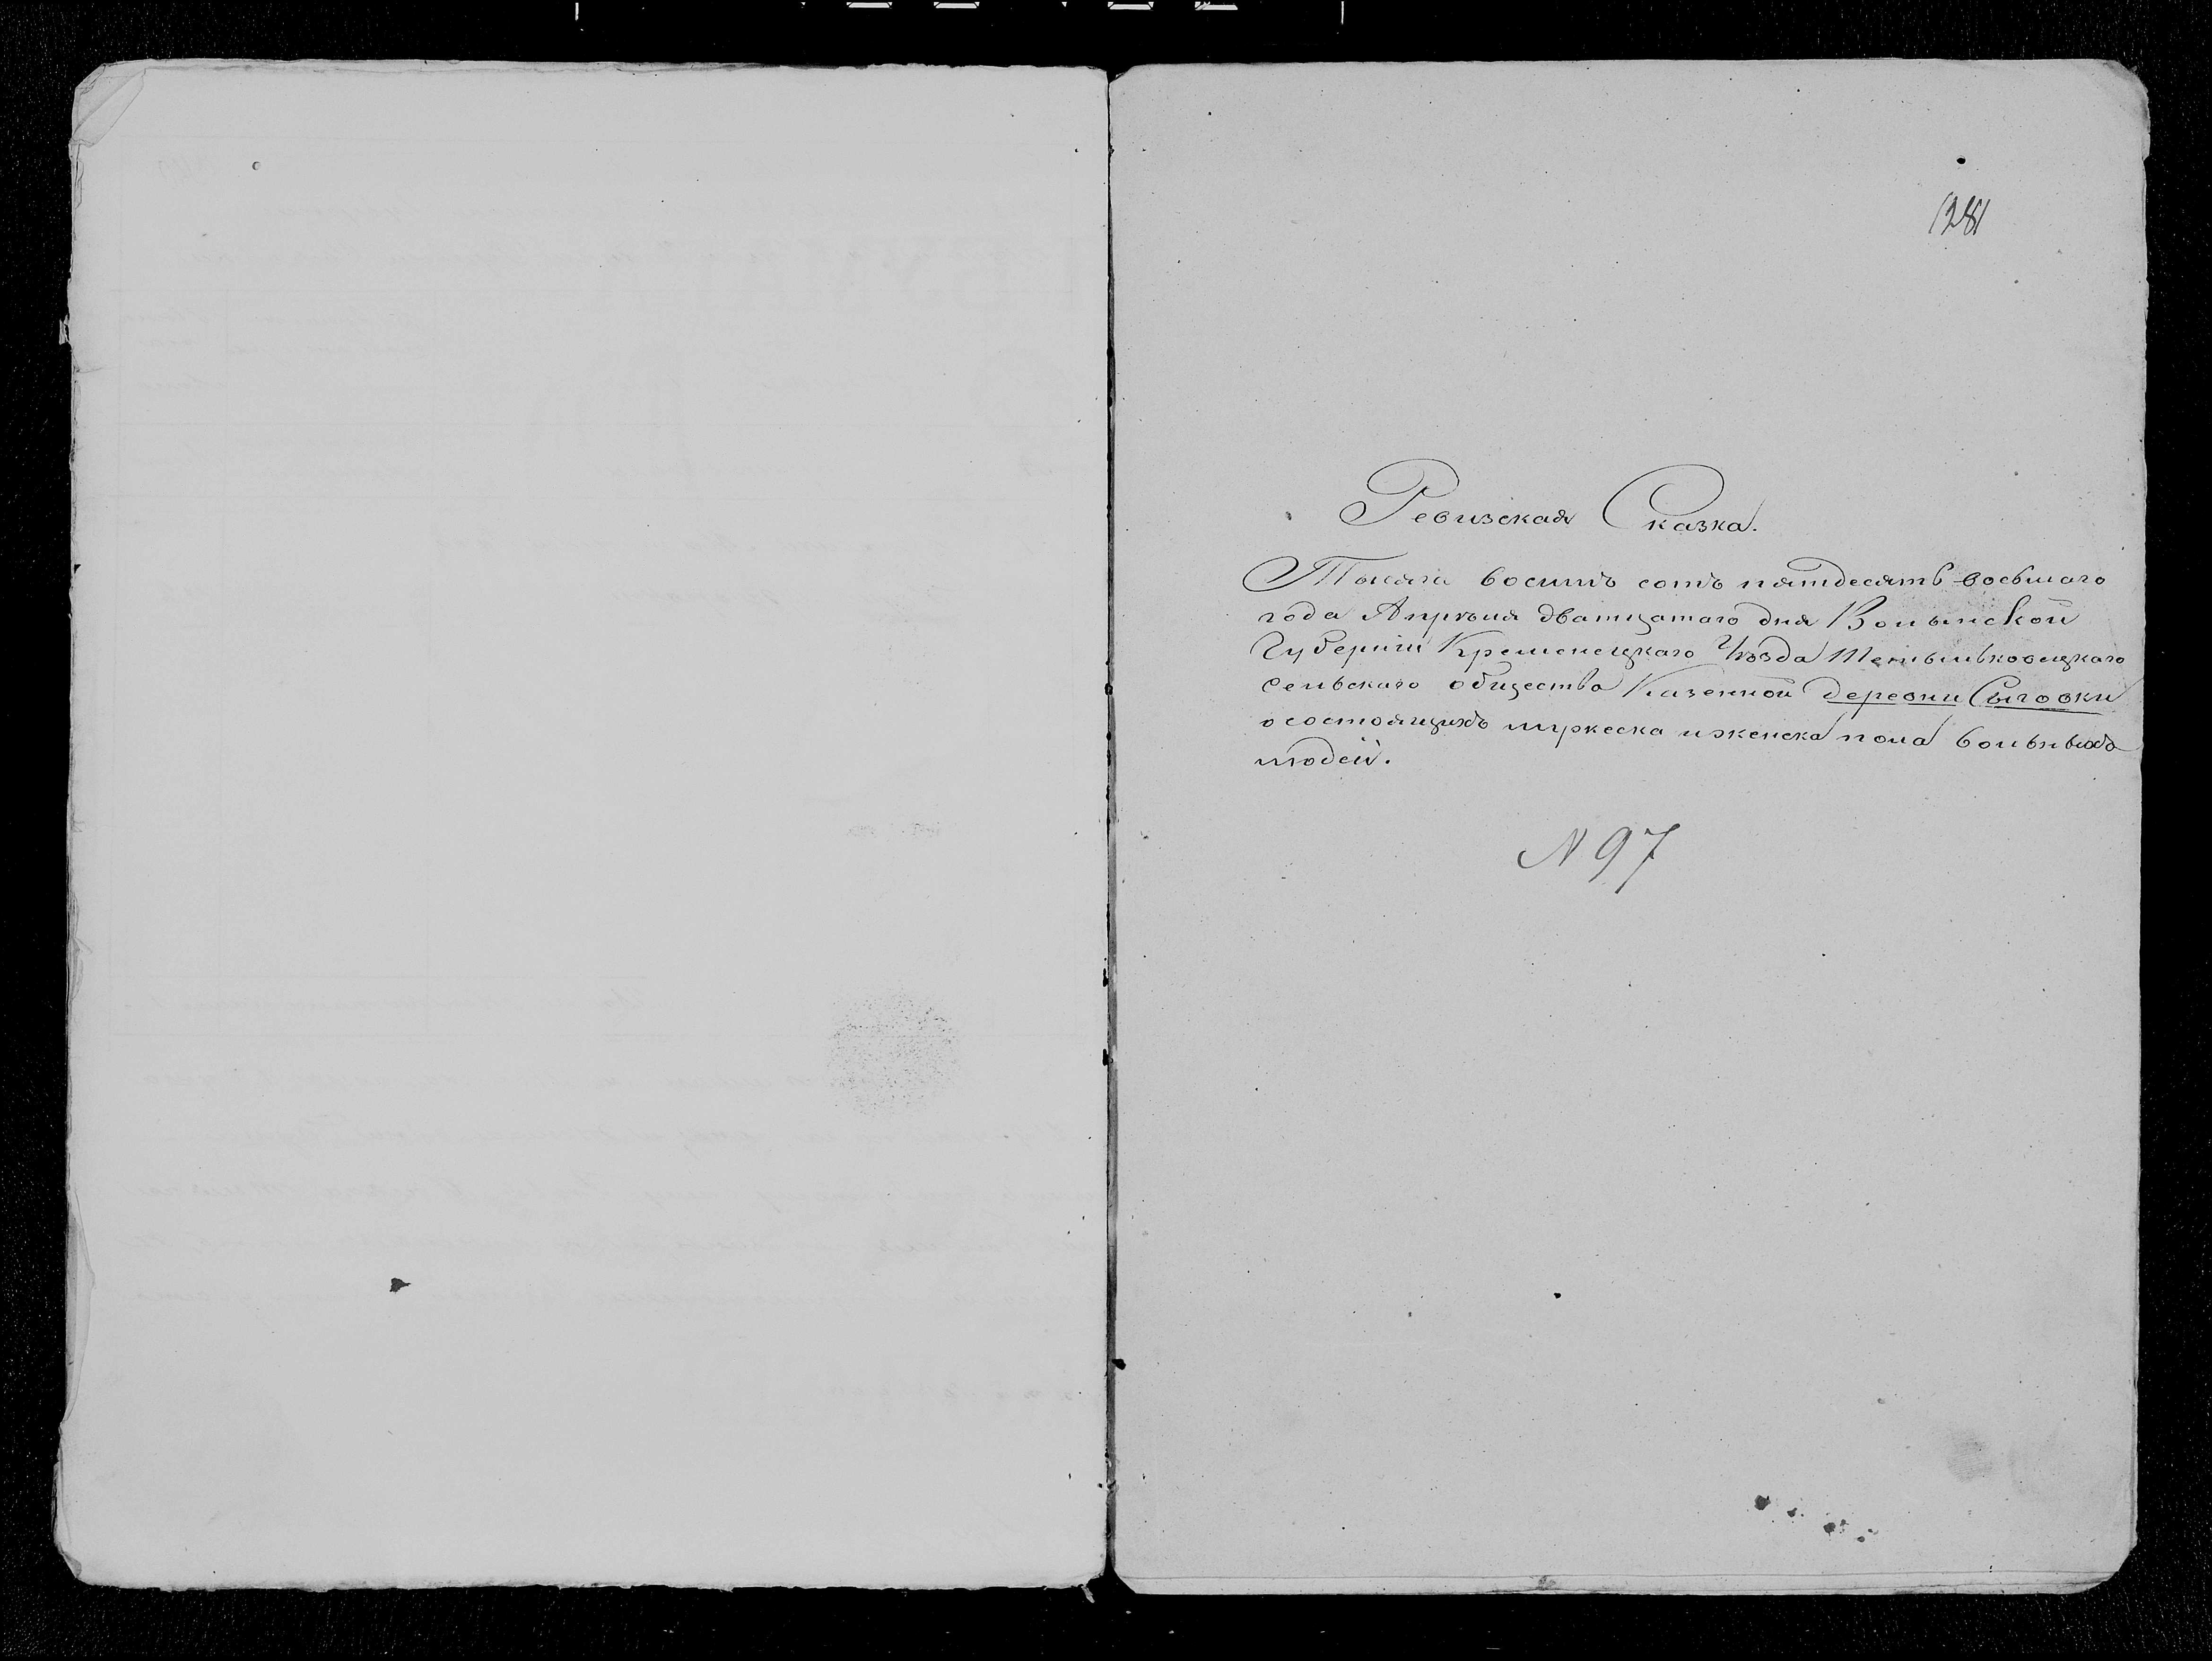 1281
Ревизская Сказка.
Тысяча восимъ сотъ пятдесятъ восьмаго
года Апрѣля дватцатаго дня Волынской
Губерніи Кременецкаго Уѣзда
сельскаго общества Казенной деревни Сыговки
о состоящихъ мужеска и женска пола вольныхъ
людей.
N 97